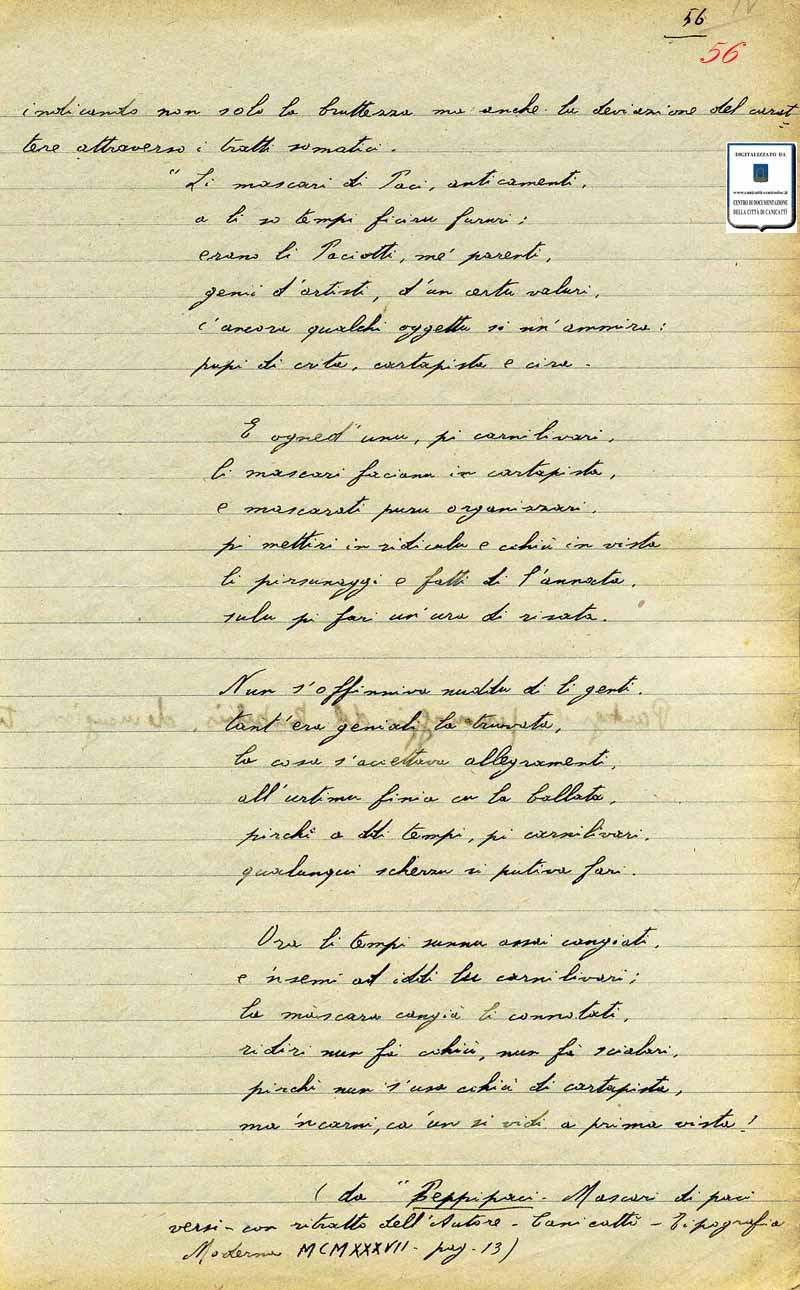 56
56
indicando non solo la bruttezza ma anche la deviazione del carat=
tere attraverso i tratti somatici.
DIGITALIZZATO DA
www.canicatti-centrodoc.it
CENTRO DI DOCUMENTAZIONE
DELLA CITTÀ DI CANICATTÌ
"Li mascari di Paci, anticamenti,
a li so tempi ficiru fururi;
erano li Paciotti, me' parenti,
genii d'artisti, d'un certu valuri,
c'ancora qualchi oggettu si nn'ammira:
pupi di crita, cartapista e cira.
E ogned'unu, pi carnilivari,
li mascari facianu in cartapista,
e mascarati puru organizzari,
pi mettiri in ridiculu e cchiù in vista
li pirsunaggi e fatti di l'annata,
sulu pi fari un'ura di risata.
Nun s'offinniva nuddu di li genti,
tant'era geniali la truvata,
la cosa s'accittava allegramenti,
all'urtimu finia cu la ballata,
pirchì a ddi tempi, pi carnilivari,
qualunqui scherzu si putiva fari.
Ora li tempi sunnu assai cangiati,
e 'nsemi ad iddi lu carnilivari;
la màscara cangià li connotati,
ridiri nun fà cchiù, nun fà scialari,
pirchì nun s'usa cchiù di cartapista,
ma 'ncarni, ca 'un si vidi a prima vista!
(da "Peppipaci - Mascari di paci
versi - con ritratto dell'Autore - Canicattì - Tipografia
Moderna MCMXXXVII - pag. 13)